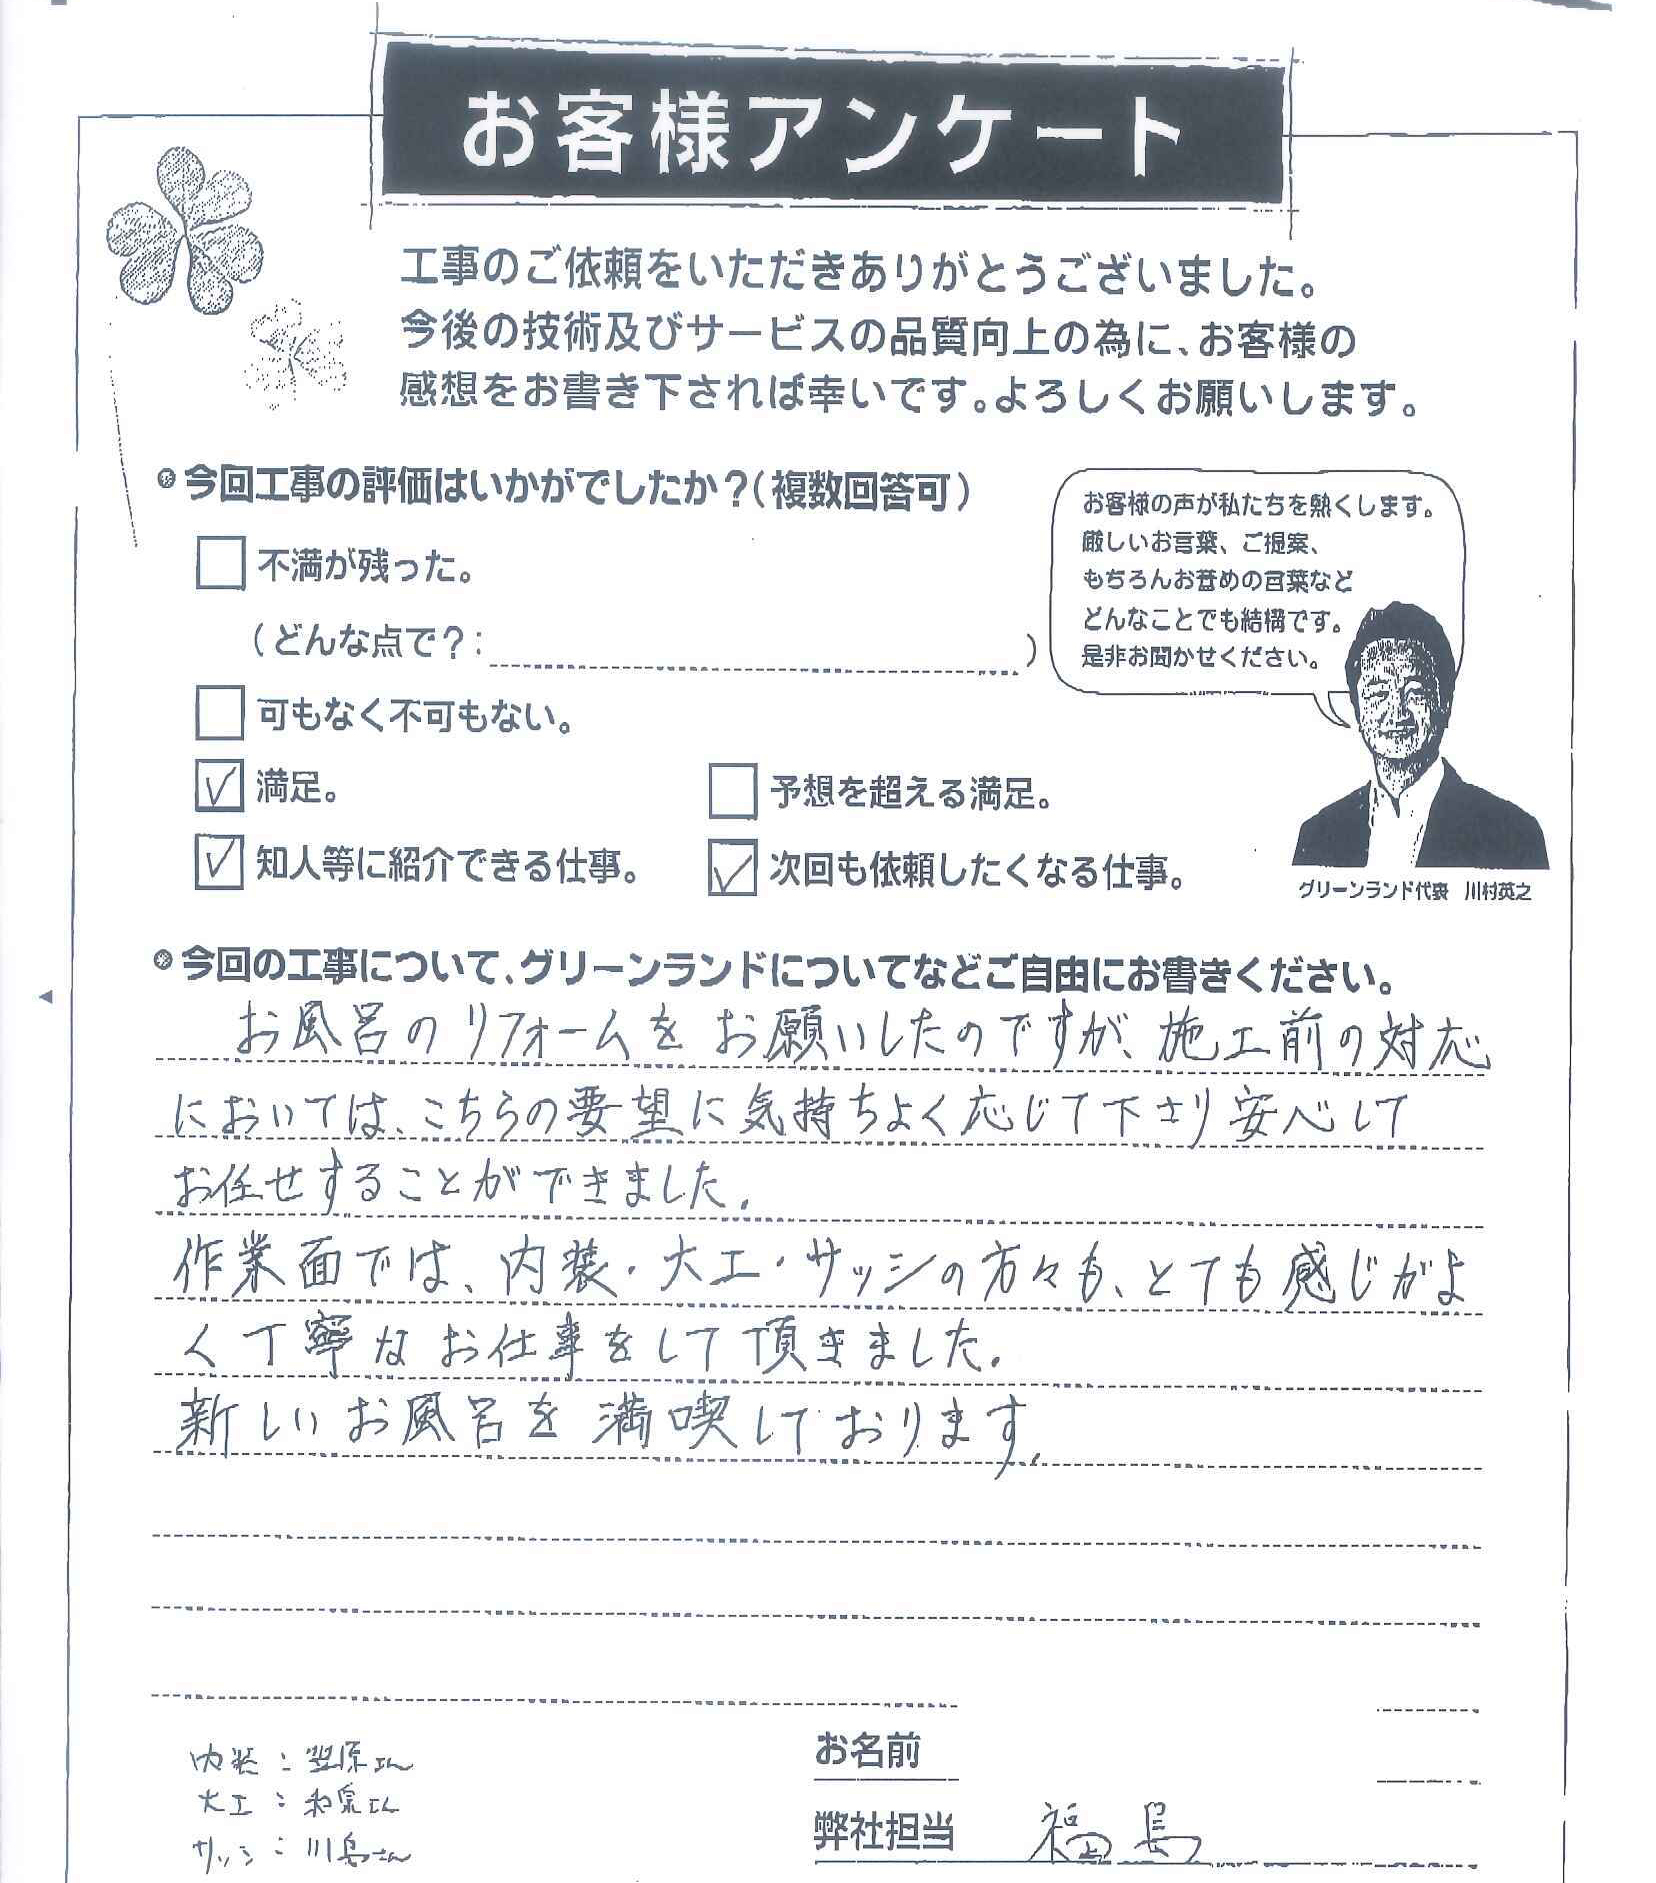 お客様アンケート
工事のご依頼をいただきありがとうございました。
今後の技術及びサービスの品質向上の為に、お客様の
感想をお書き下されば幸いです。よろしくお願いします。
今回工事の評価はいかがでしたか？（複数回答可）
不満が残った。
（どんな点で？：　　）
可もなく不可もない。
満足。
予想を超える満足。
知人等に紹介できる仕事。
次回も依頼したくなる仕事。
お客様の声が私たちを熱くします。
厳しいお言葉、ご提案、
もちろんお誉めの言葉など
どんなことでも結構です。
是非お聞かせください。
グリーンランド代表　川村英之
今回の工事について、グリーンランドについてなどご自由にお書きください。
お風呂のリフォームをお願いしたのですが、施工前の対応
においては、こちらの要望に気持ちよく応じて下さり安心して
お任せすることができました。
作業面では、内装・大工・サッシの方々も、とても感じがよ
く丁寧なお仕事をして頂きました。
新しいお風呂を満喫しております。
内装：笠原さん
大工：和泉さん
サッシ：川島さん
お名前
弊社担当　福島